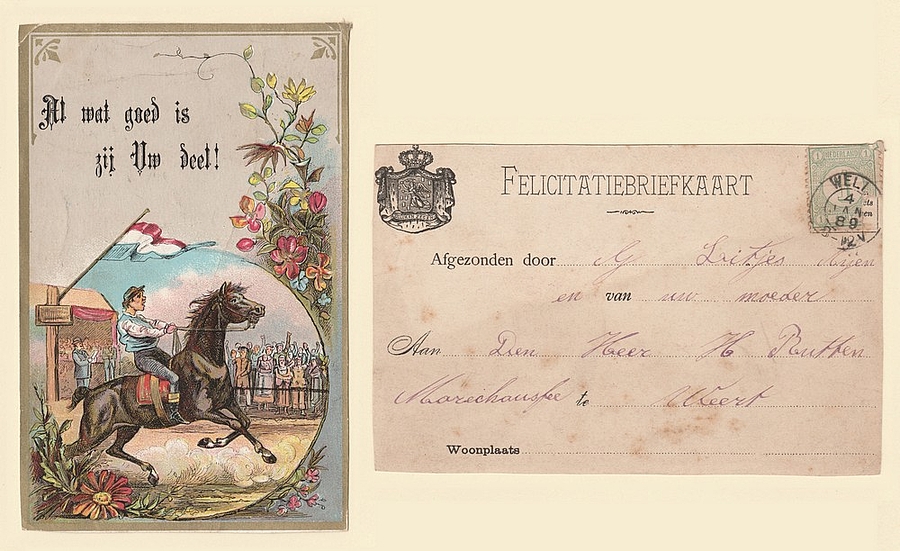 Al wat goed is
zij Uw deel!
FELICITATIEBRIEFKAART
WELL
4
JAN
89
Afgezonden door
en van uw moeder
Aan Den Heer H Rutten
te Weert
Woonplaats